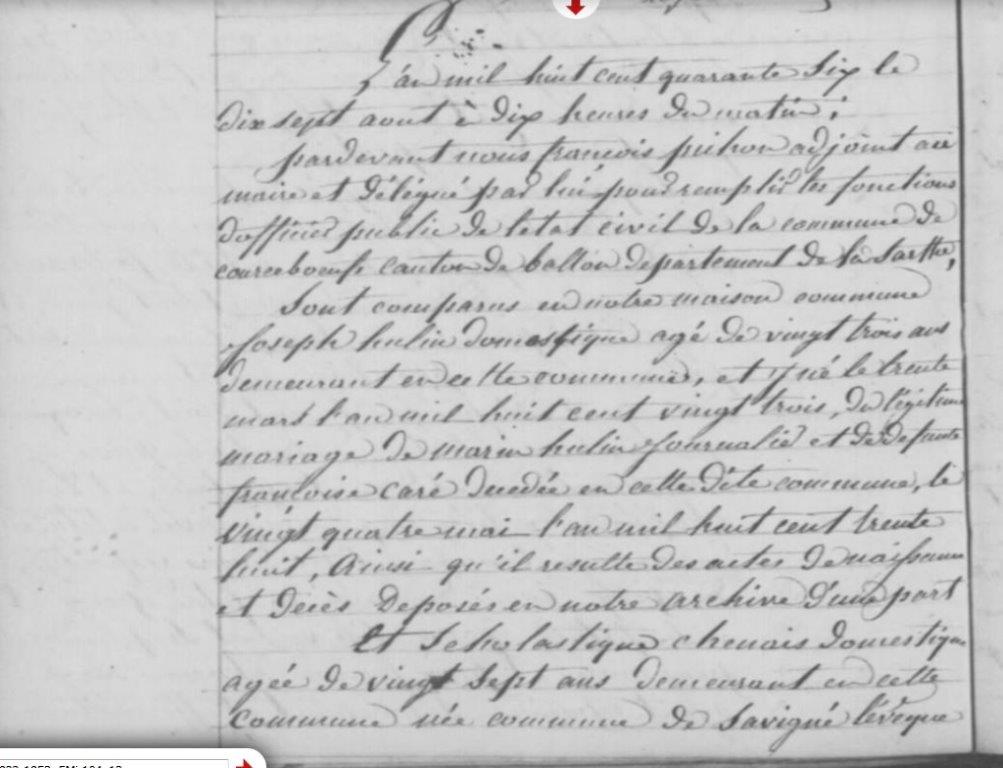 L'an mil huit cent quarante six le
dix sept aout à dix heures du matin;
pardevant nous françois pichon adjoint au
maire et délégué par lui pour remplir les fonctions
d'officier public de l'etat civil de la commune de
courceboeufs canton de ballon departement de la Sarthe,
Sont comparus en notre maison commune
Joseph hulin domestique agé de vingt trois ans
demeurant en cette commune, et y né le trente
mars l'an mil huit cent vingt trois, du légitime
mariage de marin hulin Journalier et de defunte
françoise caré decedée en cette dite commune, le
vingt quatre mai l'an mil huit cent trente
huit, Ainsi qu'il resulte des actes de naissance
et decès deposés en notre archive d'une part
Et Scholastique chenais domestique
agée de vingt sept ans demeurant en cette
commune née commune de Savigné lévêque